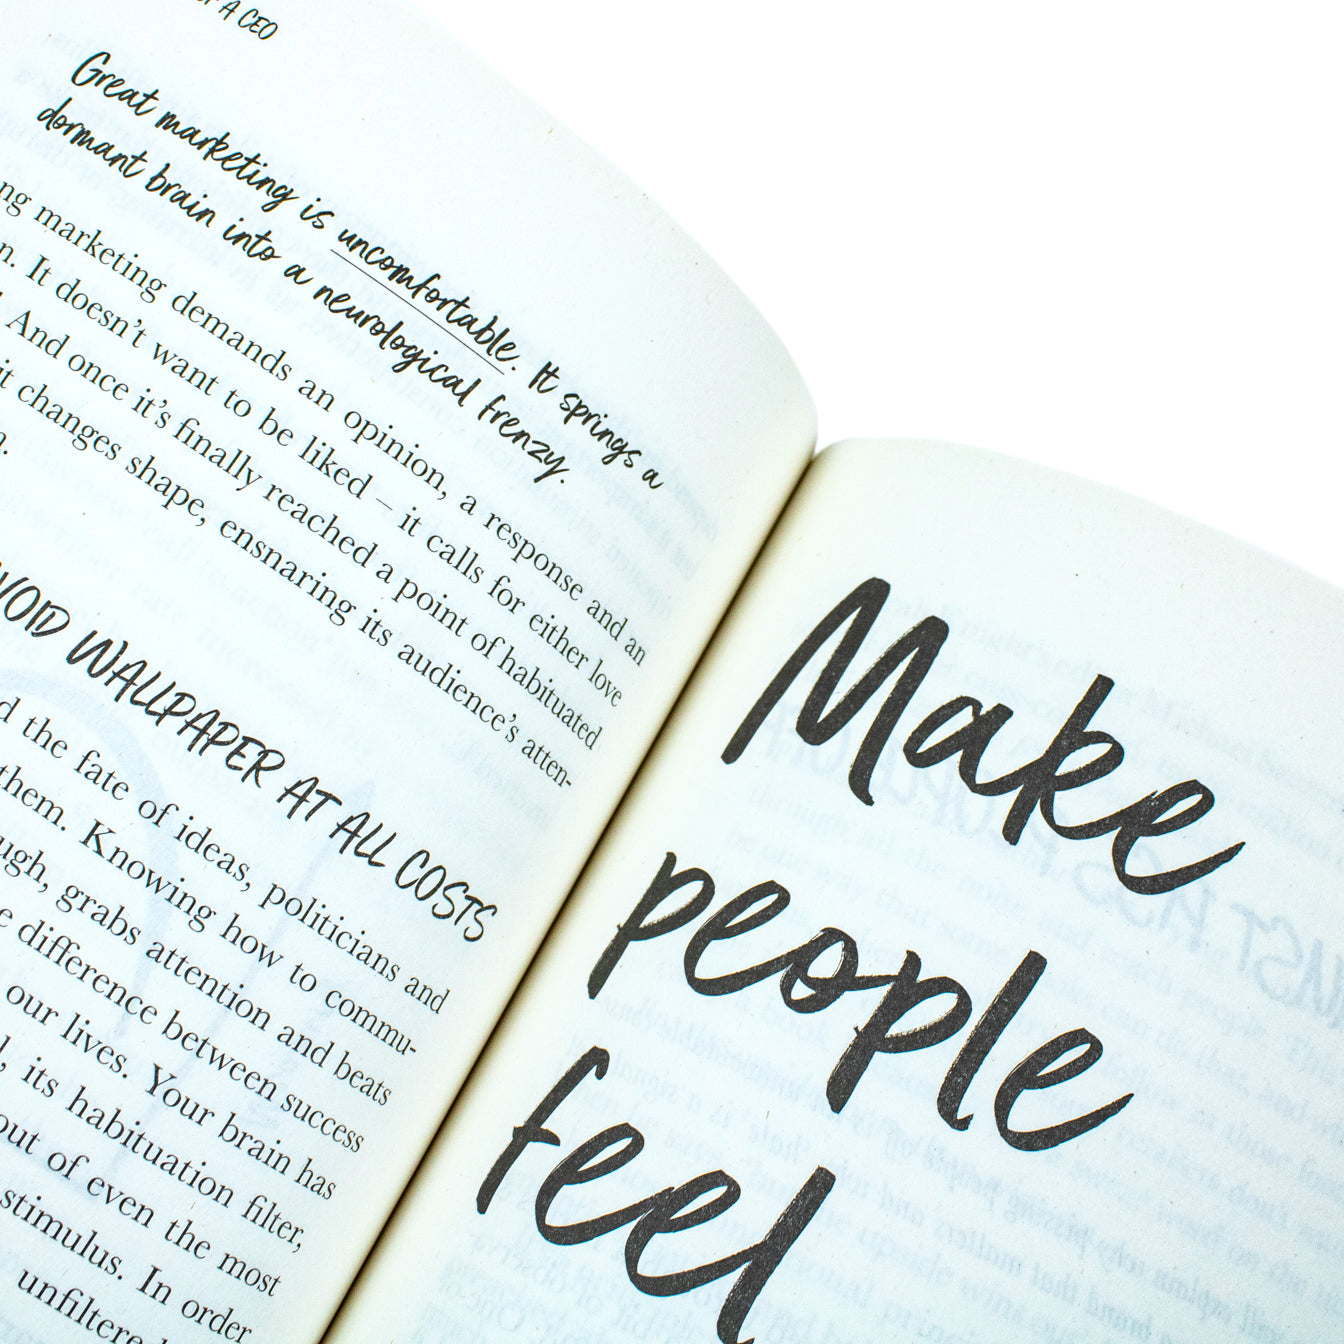 A CEO
Great marketing is uncomfortable. It springs a
dormant brain into a neurological frenzy.
marketing demands an opinion, a response and an
It doesn't want to be liked – it calls for either love
And once it's finally reached a point of habituated
it changes shape, ensnaring its audience's atten-
WALLPAPER AT ALL COSTS
the fate of ideas, politicians and
them. Knowing how to commu-
grabs attention and beats
difference between success
our lives. Your brain has
its habituation filter,
out of even the most
stimulus. In order
unfiltere
Make
people
feel